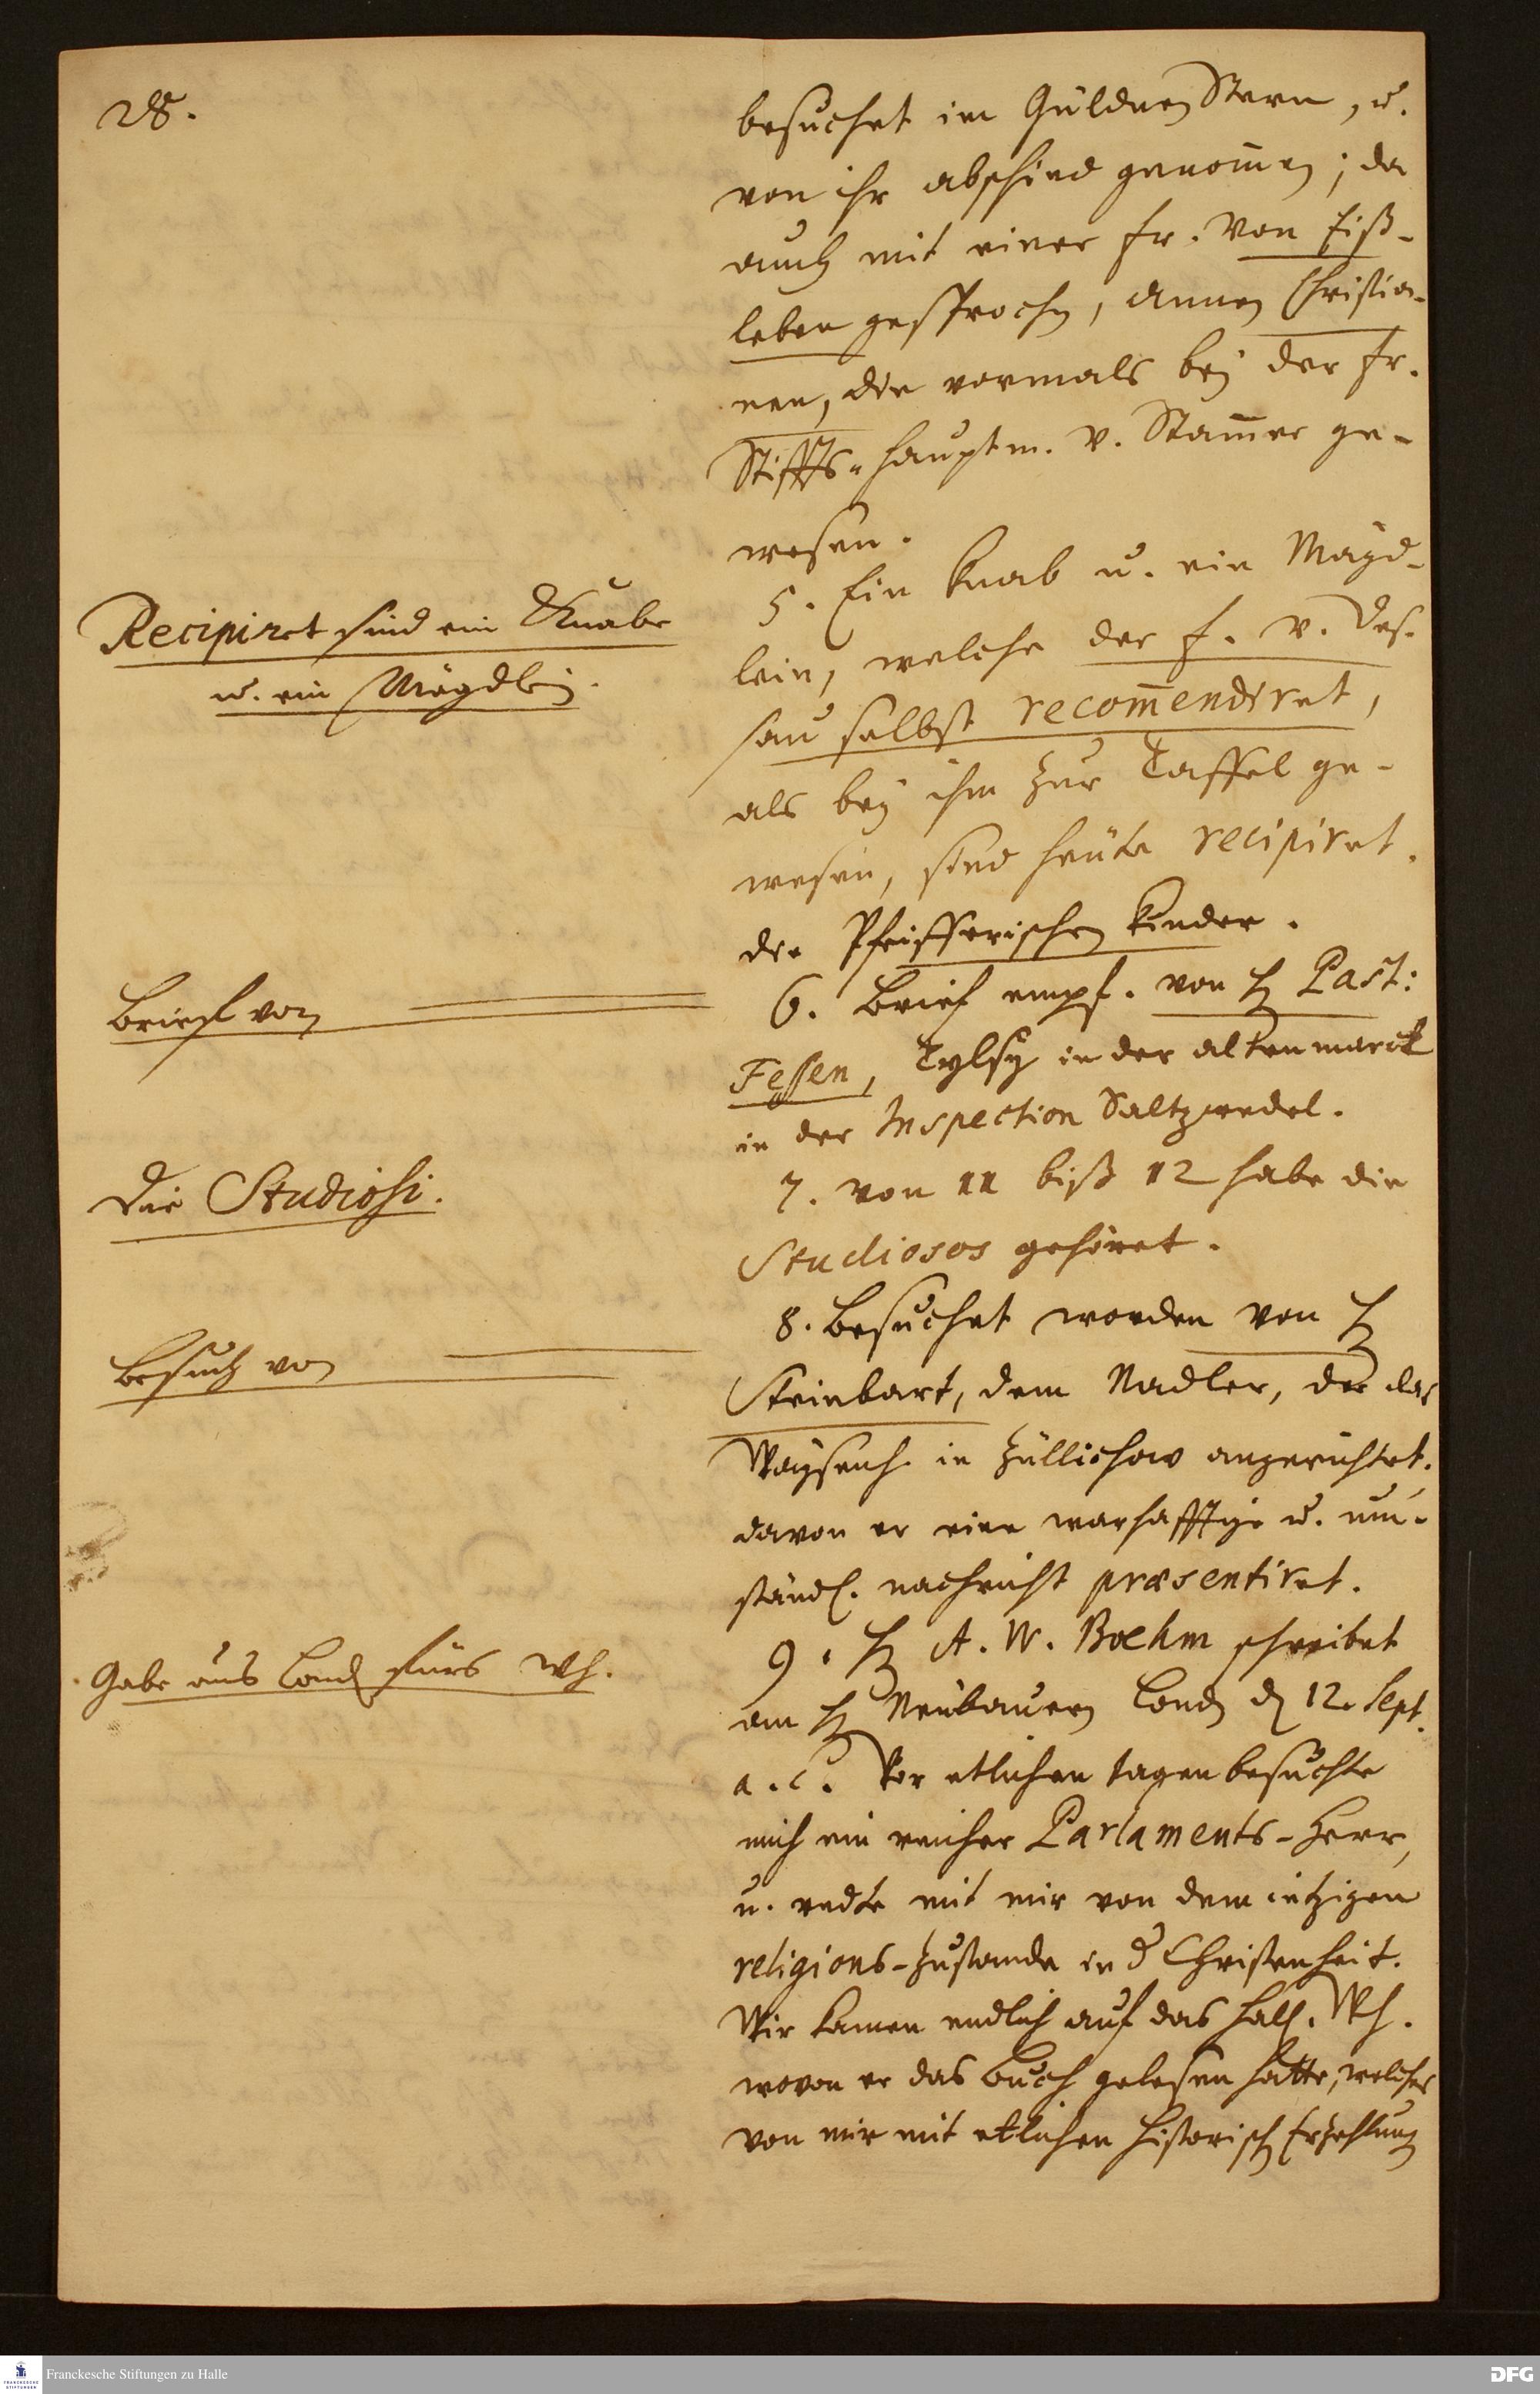 28.
besuchet im Gülden Stern, u.
von ihr abschied genom̄en; da
auch mit einer Fr. von Eiß-
leben gesprochen, Annen Christia-
nen, die vormals bey der Fr.
Stiffts-Hauptm. v. Stam̄er ge-
wesen.
Recipiret sind ein Knabe
u. ein Mägdlein.
5. Ein Knab u. ein Mägd-
lein, welche der F. v. Des-
sau selbst recom̄endiret,
als bey ihm zur Taffel ge-
wesen, sind heute recipiret.
die Pfeifferischen Kinder.
Brief von
6. Brief empf. von H. Past:
Fessen, Tylsen in der alten marck
in der Inspection Saltzwedel.
Die Studiosi.
7. von 11 biß 12 habe die
Studiosos gehöret.
Besuch von
8. Besuchet worden von H.
Steinbart, dem Nadler, der das
Waysenh. in Züllichow angerichtet.
davon er eine warhafftige u. um-
ständl. nachricht præsentiret.
Gabe aus Lond. fürs Wh.
9. H. A. W. Boehm schreibet
an H. Neubauern Lond. d. 12. Sept.
a. c. Vor etlichen tagen besuchte
mich ein reicher Parlaments-Herr,
u. redte mit mir von dem ietzigen
religions-Zustande in d. Christenheit.
Wir kamen endlich auf das Hall. Wh.
wovon er das Buch gelesen hatte, welches
von mir mit etlichen historisch. Erzehlung
Franckesche Stiftungen zu Halle
DFG